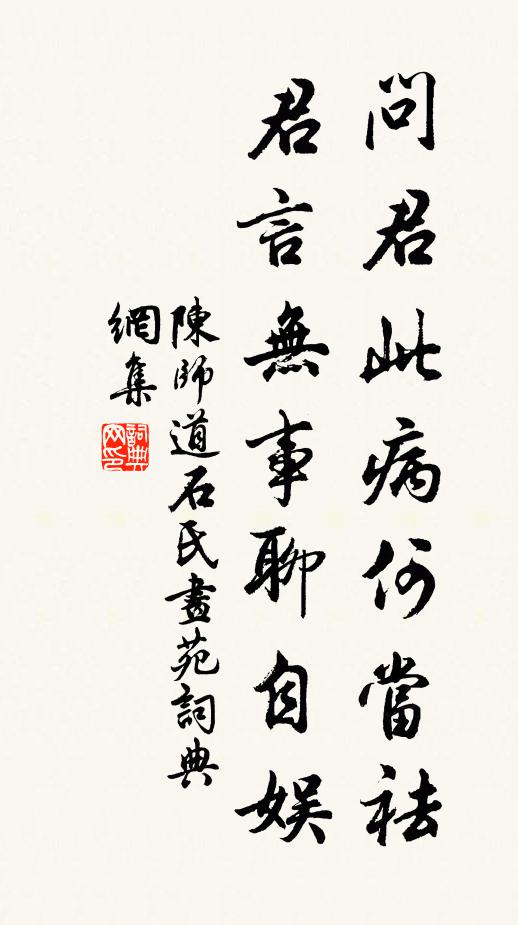 問君此病何當祛
君言無事聊自娛
陳師道石氏畫苑詞典
網集
詞典網印